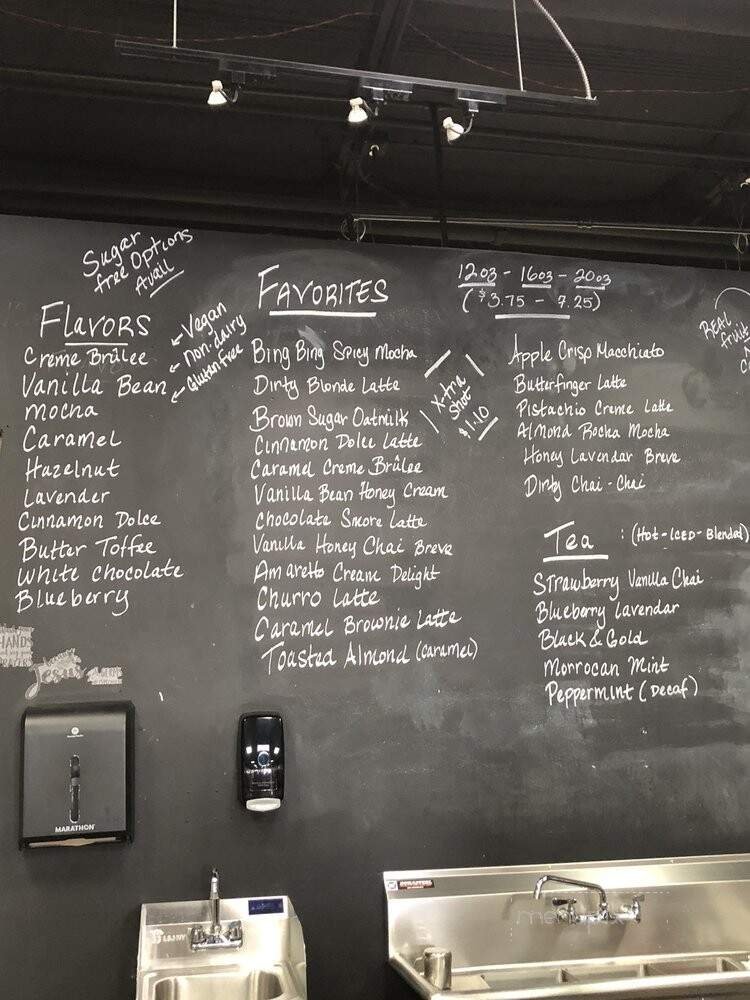 Sugar
free Options
Avail
Flavors
← Vegan
← non-dairy
← Gluten Free
Creme Brûlee
Vanilla Bean
mocha
Caramel
Hazelnut
Lavender
Cinnamon Dolce
Butter Toffee
White Chocolate
Blueberry
FAVORITES
Bing Bing Spicy Mocha
Dirty Blonde Latte
Brown Sugar Oatmilk
Cinnamon Dolce Latte
Caramel Creme Brûlee
Vanilla Bean Honey Cream
Chocolate Smore Latte
Vanilla Honey Chai Breve
Amaretto Cream Delight
Churro Latte
Caramel Brownie Latte
Toasted Almond (caramel)
X-tra
Shot
$1.10
12oz - 16oz - 20oz
($3.75 - 7.25)
Apple Crisp Macchiato
Butterfinger Latte
Pistachio Creme Latte
Almond Rocha Mocha
Honey Lavendar Breve
Dirty Chai-Chai
Tea : (Hot-Iced-Blended)
Strawberry Vanilla Chai
Blueberry Lavendar
Black & Gold
Morrocan Mint
Peppermint (Decaf)
REAL
fruit
MARATHON